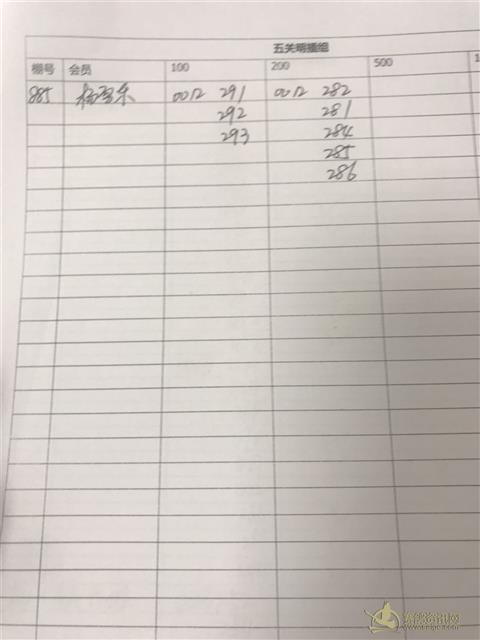 五关明插组
棚号 会员 100 200 500 1
885 0012 291 0012 282
292 281
293 284
285
286